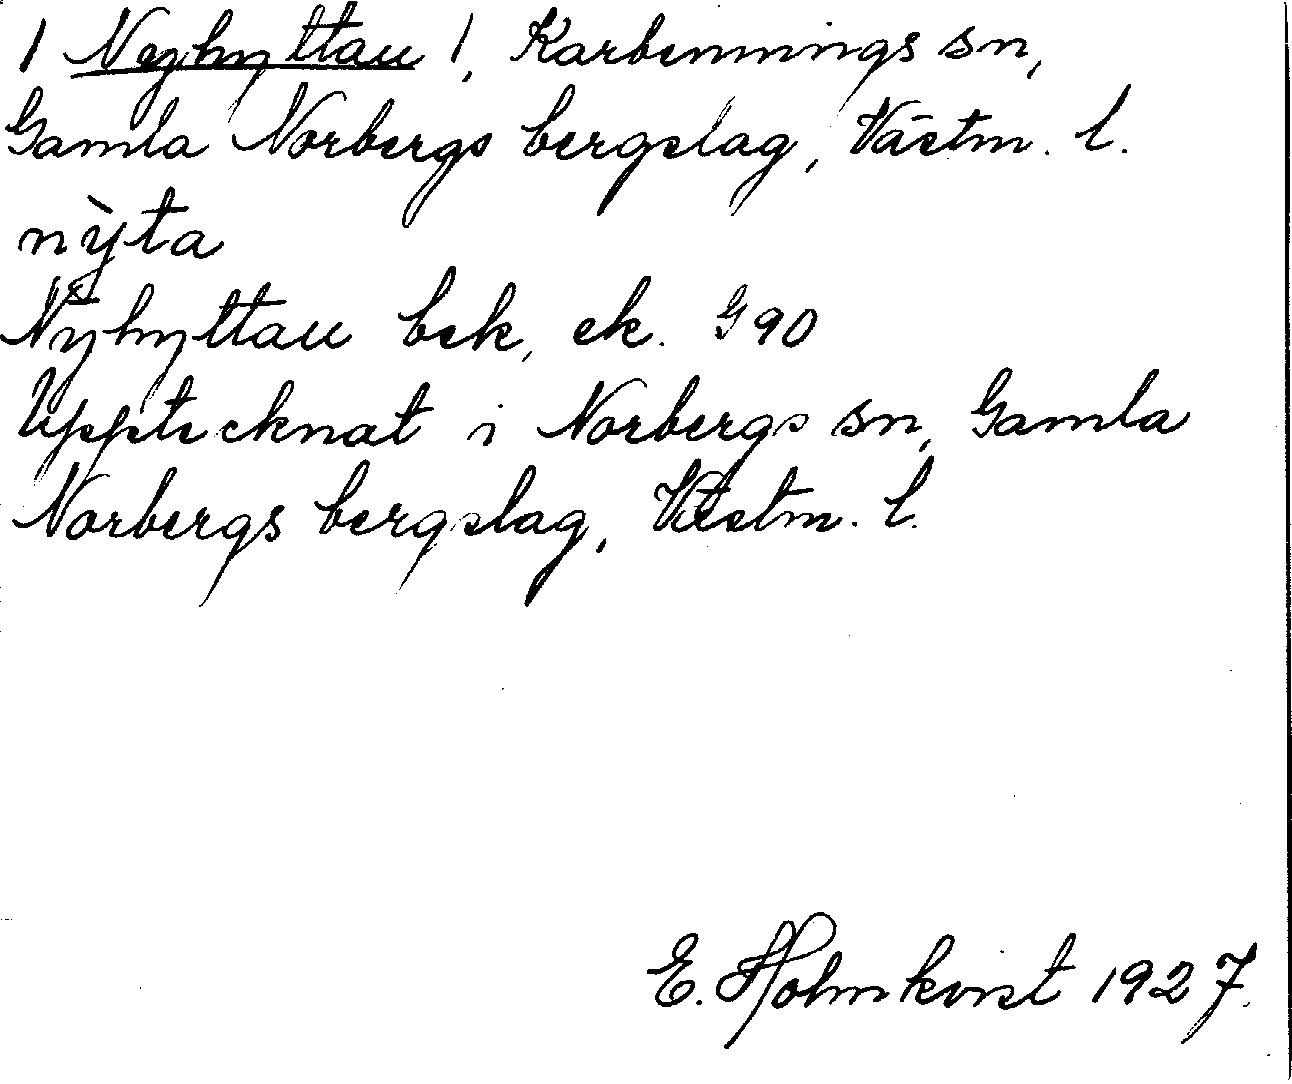 / Nyhyttan /, Karbennings sn,
Gamla Norbergs bergslag, Västm. l.
nỳta
Nyhyttan bek, ek. G 90
Upptecknat i Norbergs sn, Gamla
Norbergs bergslag, Västm. l.
E. Holmkvist 1927.